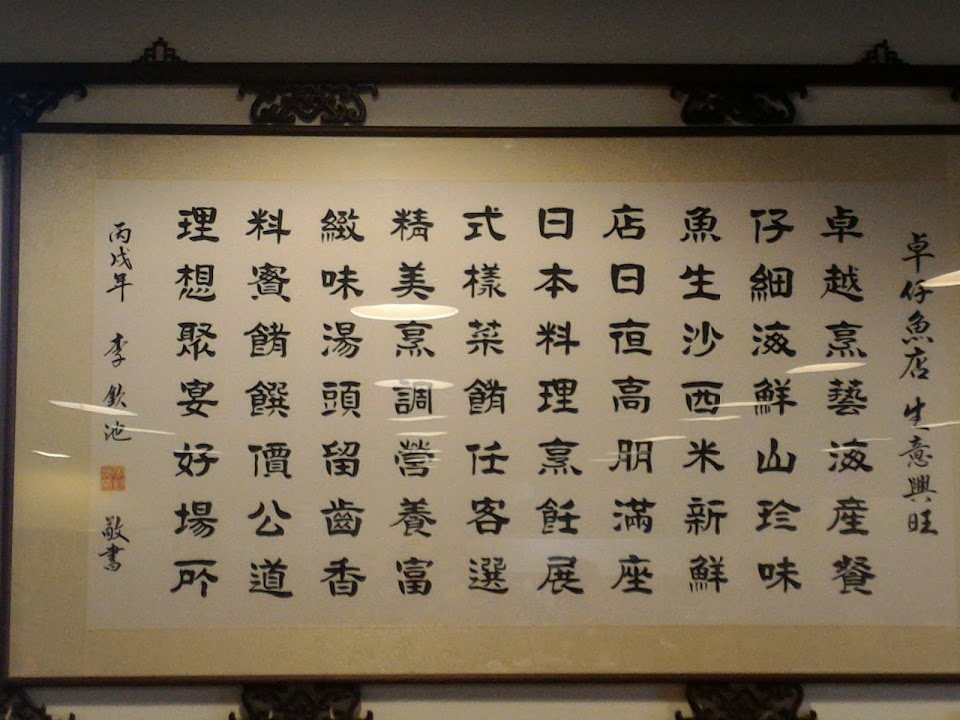 卓仔魚店 生意興旺
卓越烹藝海產餐
仔細海鮮山珍味
魚生沙西米新鮮
店日亱高朋滿座
日本料理烹飪展
式樣菜餚任客選
精美烹調營養富
緻味湯頭留齒香
料賓餚饌價公道
理想聚宴好場所
丙戌年 李欽池 敬書